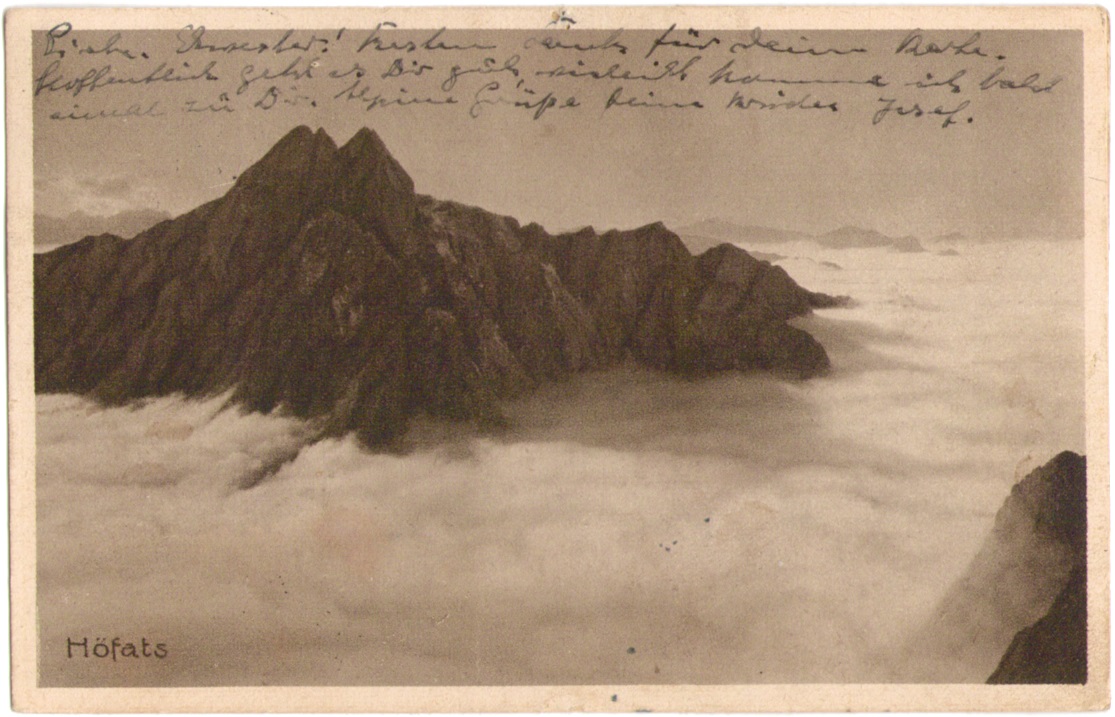 Liebe Schwester! Besten Dank für Deine Karte.
Hoffentlich geht es Dir gut, vieleicht komme ich bald
einmal zu Dir. Alpine Grüße Deine Bruder Josef.
Höfats